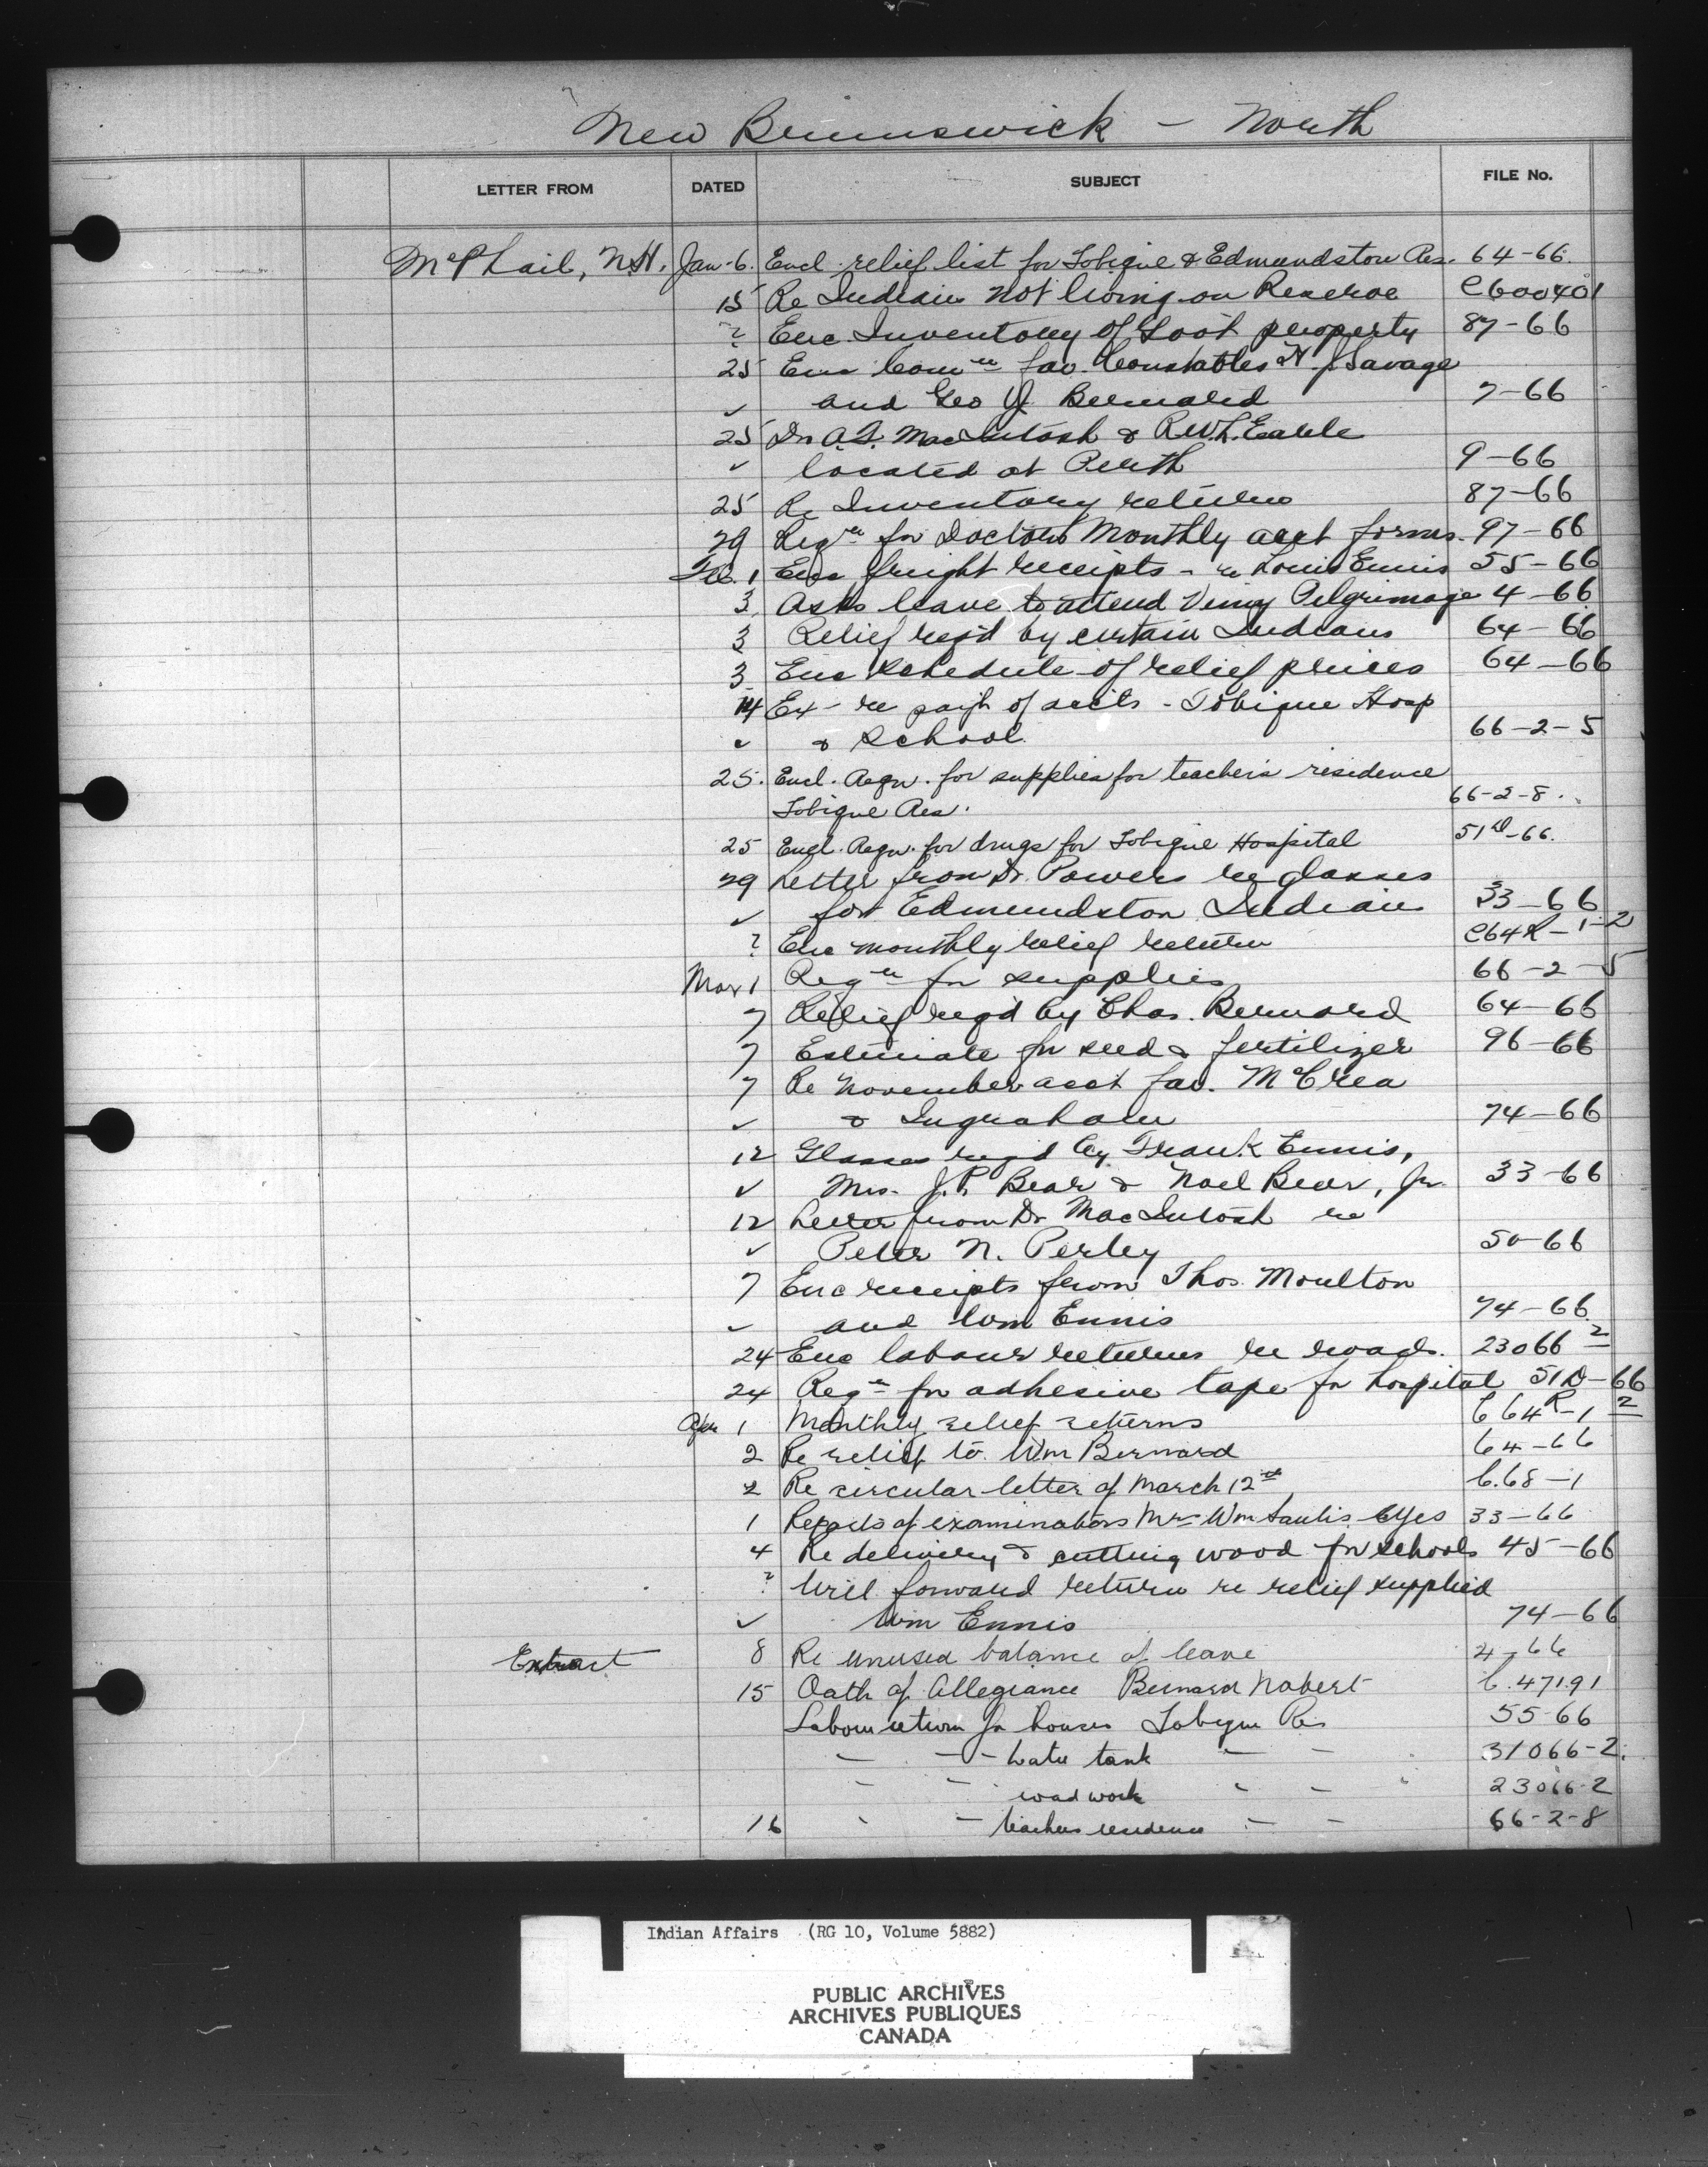 New Brunswick - North
LETTER FROM DATED SUBJECT FILE No.
McPhail, N.H. Jan-6. Encl. relief list for Tobique & Edmundston Res. 64-66.
15 Re Indians not living on Reserve C600401
? Enc Inventory of Govt property 87-66
25 Enc Comn re fav. Constables J Savage
✓ and Geo J Bernard 7-66
25 Dr A.F. MacIntosh & R.W.L. Earle
✓ located at Perth 9-66
25 Re Inventory returns 87-66
29 Reqn for Doctors Monthly acct forms. 97-66
Feb. 1 Enc freight receipts - re Louis Ennis 55-66
3 Asks leave to attend Vimy Pilgrimage 4-66
3 Relief reqd by certain Indians 64-66
3 Enc schedule of relief prices 64-66
14 Ex- re payt of accts - Tobique Hosp
✓ & School 66-2-5
25. Encl. Reqn. for supplies for teacher's residence
Tobique Res. 66-2-8.
25 Encl. Reqn. for drugs for Tobique Hospital 51D-66.
29 Letter from Dr. Powers re glasses
✓ for Edmundston Indians 33-66
? Enc monthly relief return C64R-1-2
Mar 1 Reqn for supplies 66-2-5
7 Relief reqd by Chas. Bernard 64-66
7 Estimate for seed & fertilizer 96-66
7 Re November acct fav. McCrea
✓ & Ingraham 74-66
12 Glasses reqd by Frank Ennis,
✓ Mrs. J.P. Bear & Noel Bear, Jr. 33-66
12 Letter from Dr MacIntosh re
✓ Peter N. Perley 50-66
7 Enc receipts from Thos. Moulton
✓ and Wm Ennis 74-66
24 Enc labour returns re roads. 23066-2
24 Reqn for adhesive tape for hospital 51D-66
Apr 1 Monthly relief returns C64R-1-2
2 Re relief to Wm Bernard 64-66
2 Re circular letter of March 12th C.68-1
1 Reports of examinations Mrs Wm Saulis Eyes 33-66
4 Re delivery & cutting wood for schools 45-66
? Will forward return re relief supplied
✓ Wm Ennis 74-66
Extract 8 Re unused balance of leave 4-66
15 Oath of Allegiance Bernard Nobert C.47191
Labour return for houses Tobique Res 55-66
- - - water tank - - 31066-2.
- - road work - - 23066-2
16 - - teachers residence - - 66-2-8
Indian Affairs (RG 10, Volume 5882)
PUBLIC ARCHIVES
ARCHIVES PUBLIQUES
CANADA